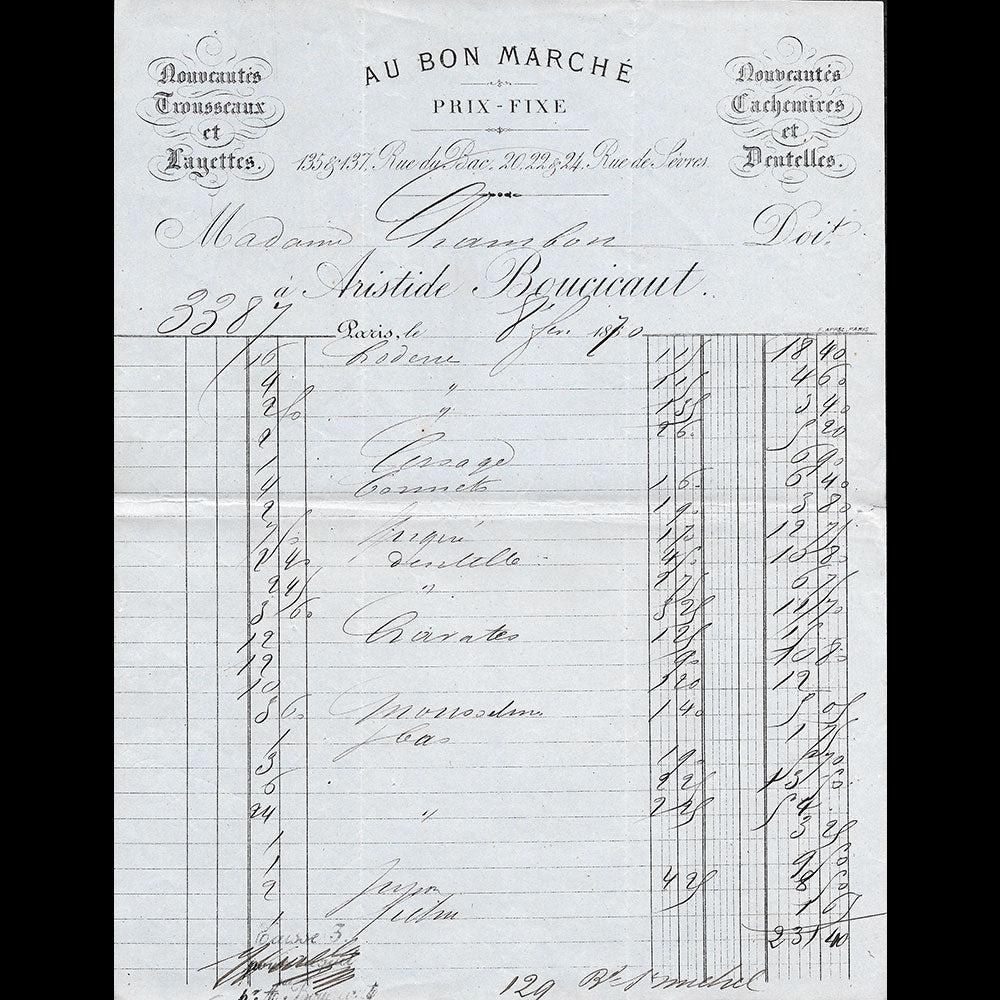 AU BON MARCHÉ
PRIX-FIXE
Nouveautés
Trousseaux
et
Layettes.
Nouveautés
Cachemires
et
Dentelles.
135 & 137, Rue du Bac, 20, 22 & 24, Rue de Sèvres
Madame Chambon Doit
à Aristide Boucicaut.
3387
Paris, le 8 fev. 1870
F. APPEL, PARIS
16 115 18 40
4 " 115 4 60
2 50 " 135 3 40
2 26 5 20
1 6 90
4 Bonnets 1 60 6 40
2 1 90 3 80
7 50 1 70 12 75
2 40 dentelle 4 50 10 80
2 45 " 2 75 6 75
3 60 3 25 11 70
12 Cravates 1 25 15
12 90 10 80
10 1 20 12
3 60 mousseline 1 40 5 05
1 Bas 1 75
3 1 90 5 70
6 2 25 13 50
24 " 2 25 54
1 3 25
1 9 50
2 Jupon 4 25 8 50
1
231 40
Caisse 3
129 Bd St michel